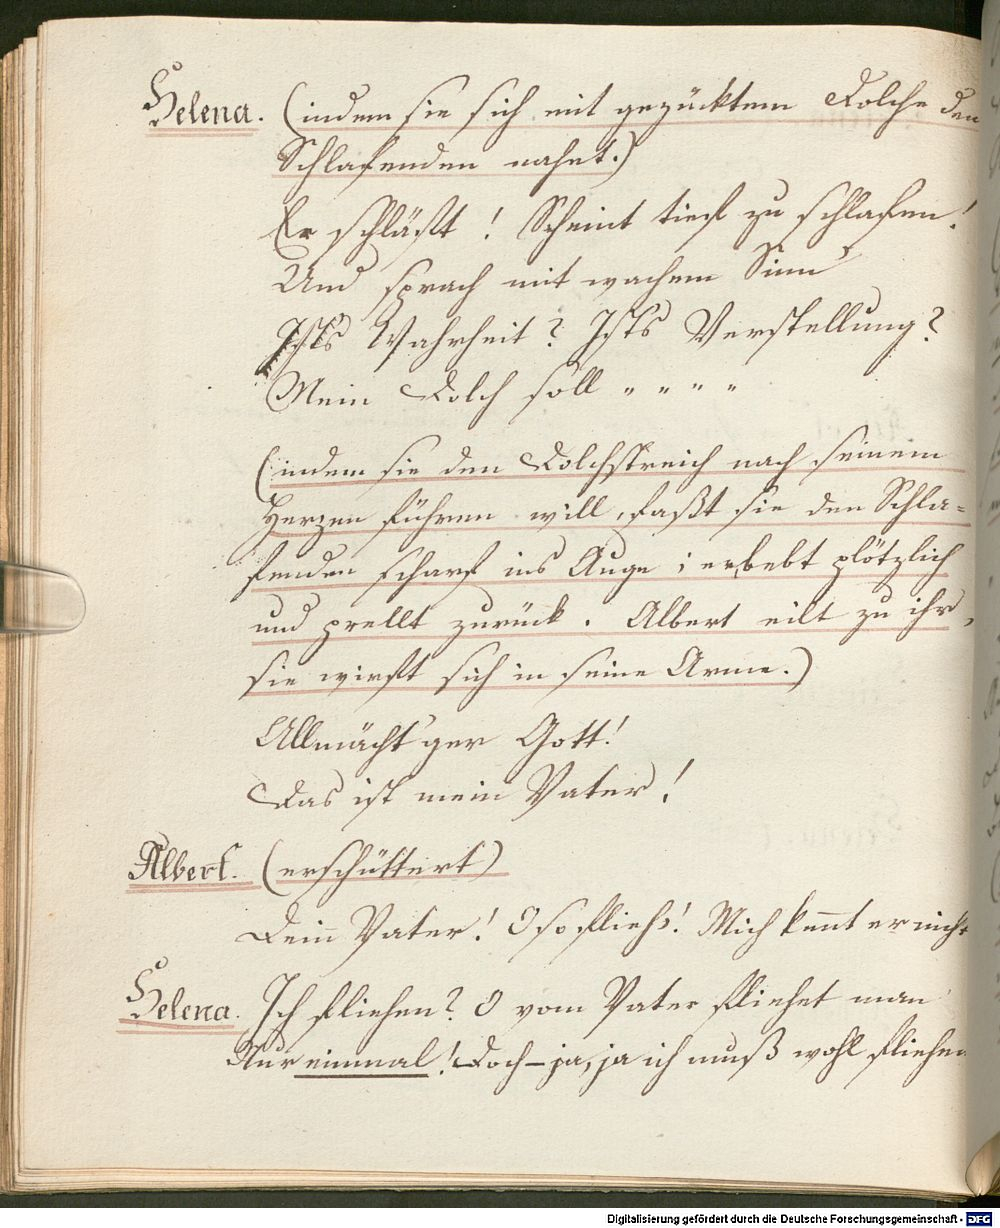 Helena. (indem sie sich mit gezücktem Dolche den
Schlafenden nahet.)
Er schläft! Scheint tief zu schlafen!
Und sprach mit wachem Sinn
Ists Wahrheit? Ists Verstellung?
Mein Dolch soll " " " "
(indem sie den Dolchstreich nach seinem
Herzen führen will, faßt sie den Schla=
fenden scharf ins Auge; erbebt plötzlich
und prellt zurück. Albert eilt zu ihr,
sie wirft sich in seine Arme.)
Allmächt'ger Gott!
Das ist mein Vater!
Albert. (erschüttert)
Dein Vater! O so flieh! Mich kennt er nicht
Helena. Ich fliehen? O vom Vater fliehet man
Nur einmal! Doch – ja, ja ich muß wohl fliehen
Digitalisierung gefördert durch die Deutsche Forschungsgemeinschaft - DFG